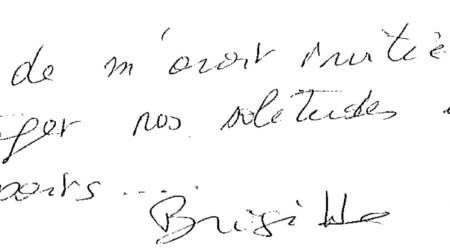 de m'avoir invitée
nos solitudes
Brigitte